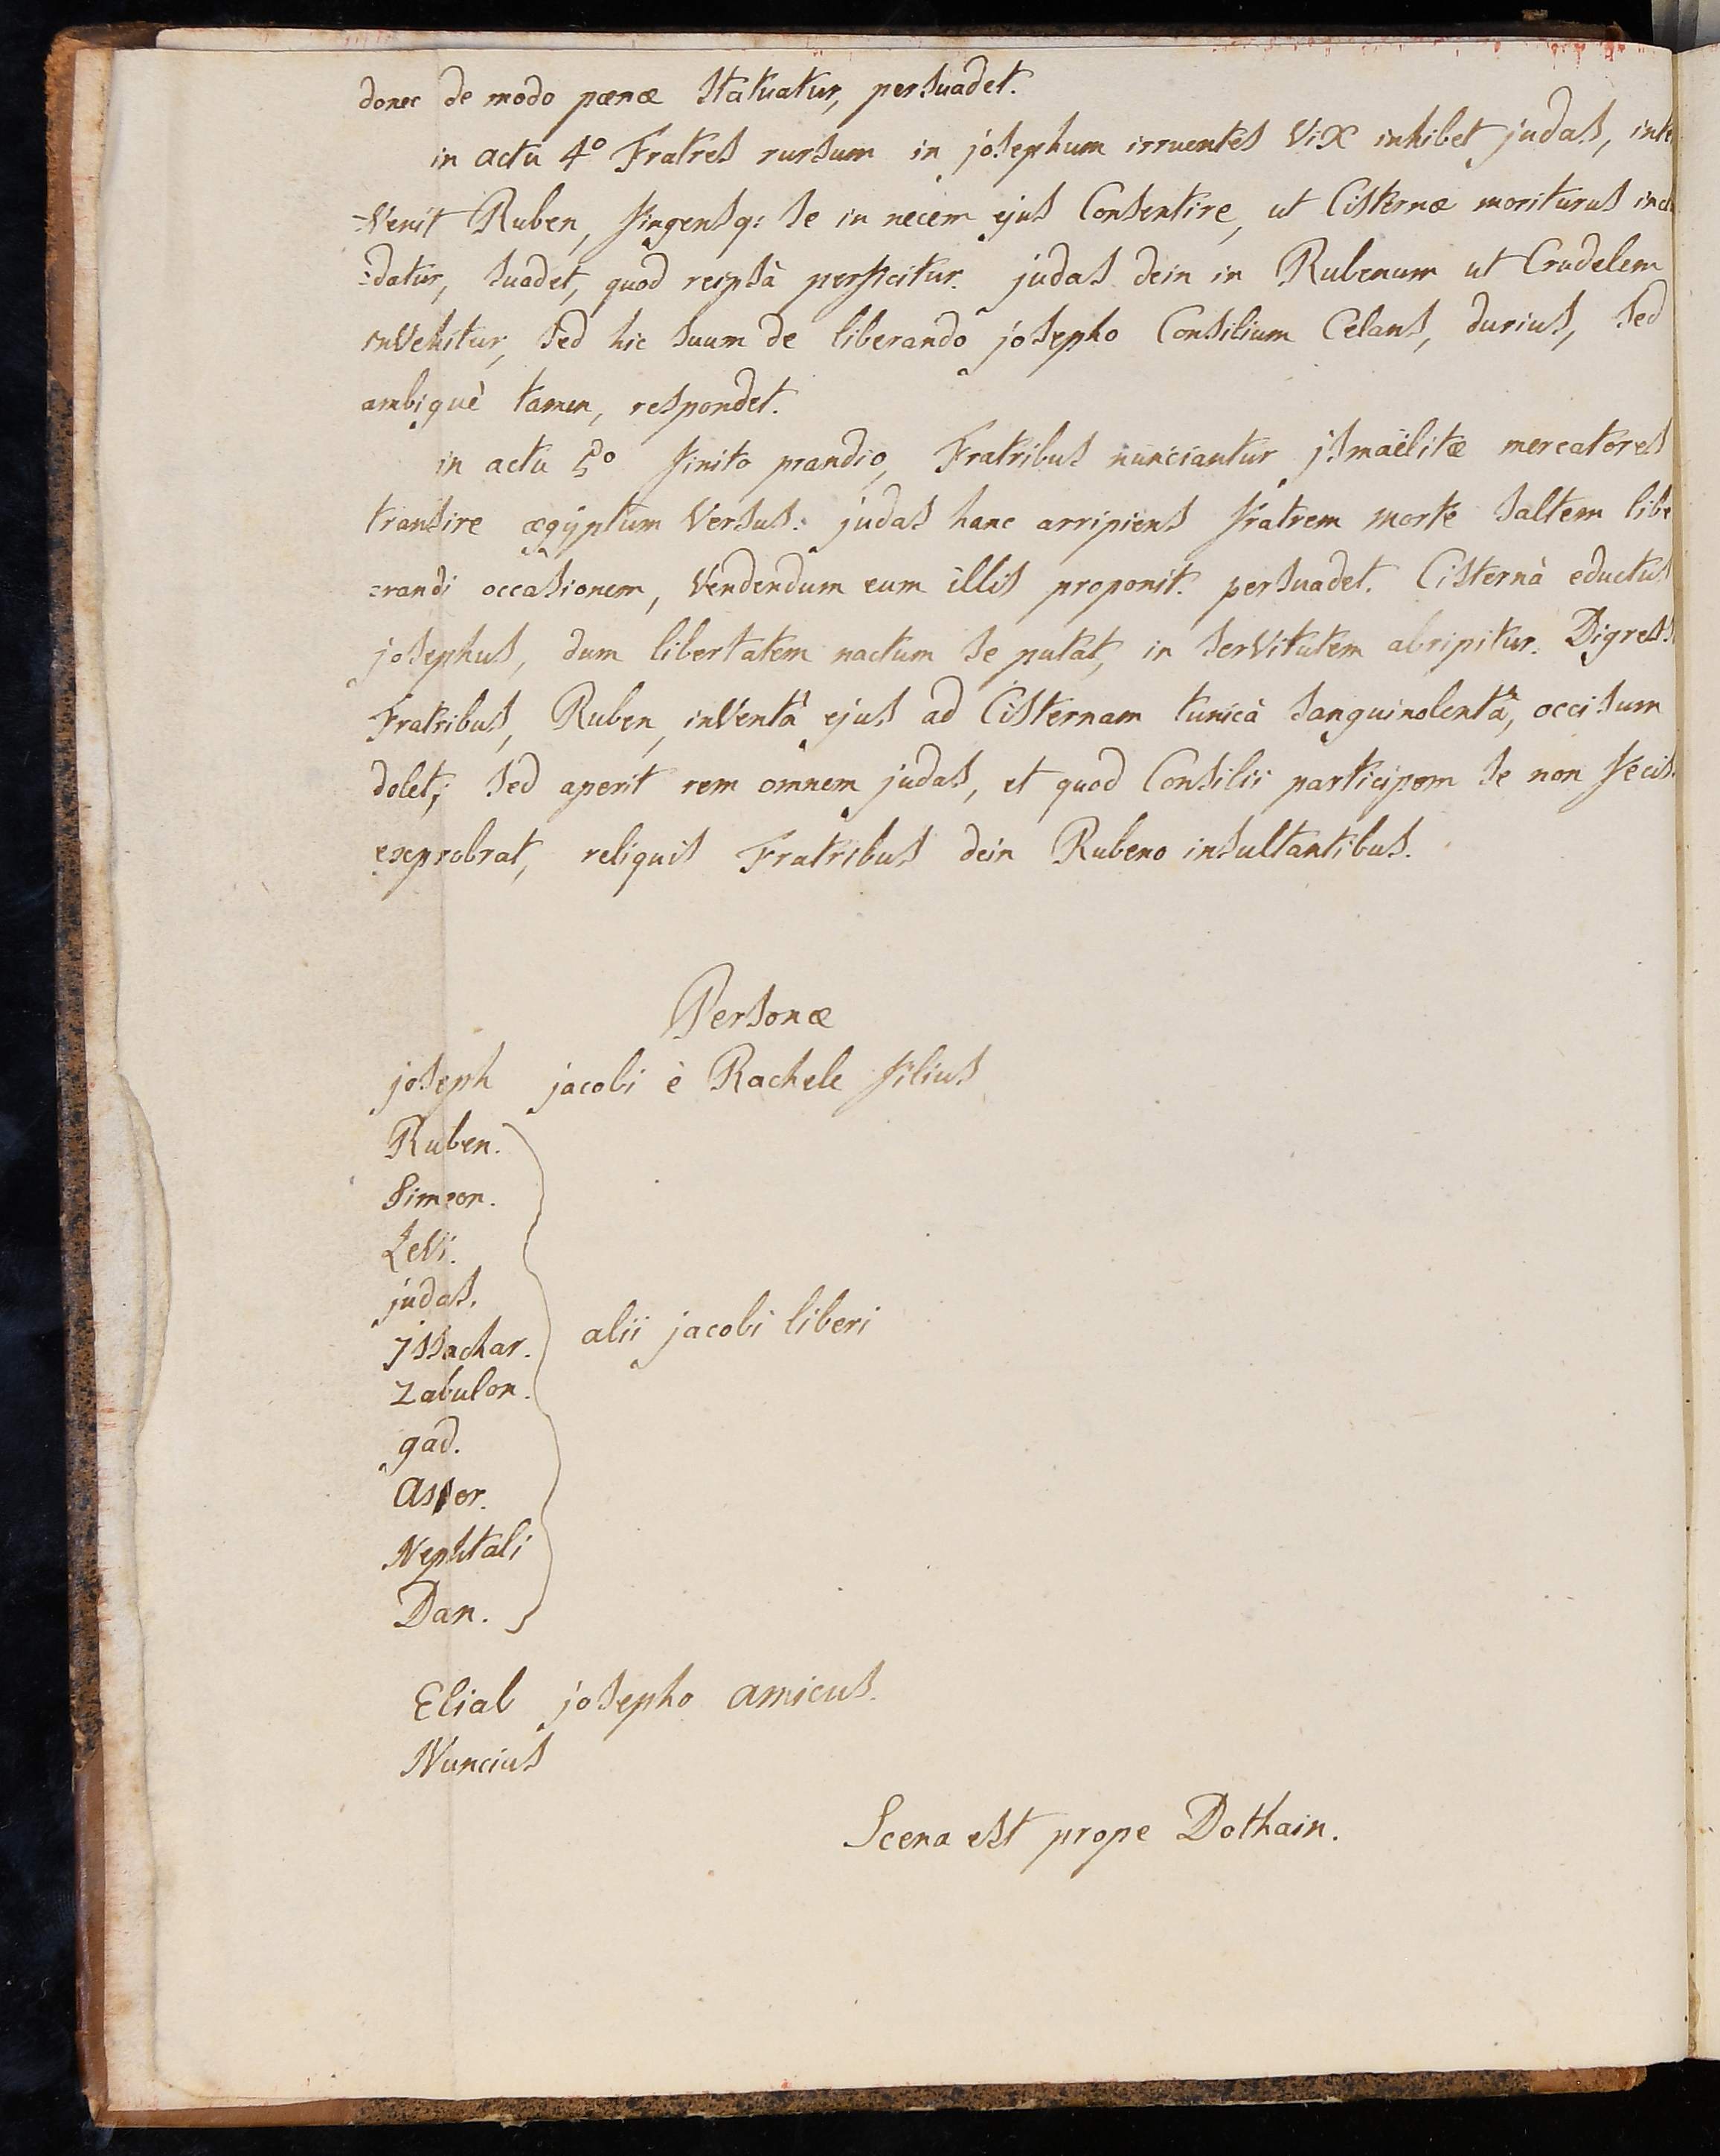 donec de modo pœnæ statuatur, persuadet.
in actu 4º Fratres rursum in josephum irruentes vix inhibet judas, inte
-venit Ruben, fingensq: se in necem ejus Consentire, ut Cisternæ moriturus inclu
:datur, suadet, quod reipsà perficitur. judas dein in Rubenum ut Crudelem
invehitur, sed hic suum de liberando josepho Consilium Celans, durius, sed
ambiguè tamen, respondet.
in actu 5º finito prandio, Fratribus nunciantur jsmaëlitæ mercatores
transire ægÿptum versus. judas hanc arripiens fratrem morte saltem libe
:randi occasionem, vendendum eum illis proponit. persuadet. Cisternà eductus
josephus, dum libertatem nactum se putat, in servitutem abripitur. Digress
Fratribus, Ruben, inventâ ejus ad Cisternam tunicà sanguinolentâ, occisum
dolet; sed aperit rem omnem judas, et quod Consilii participem se non fecis
exprobrat, reliquis Fratribus dein Rubeno insultantibus.
Personæ
joseph jacobi è Rachele filius
Ruben.
Simeon.
Levi.
judas.
jssachar.
Zabulon.
gad.
Asser.
Nephtali
Dan.
alii jacobi liberi
Eliab josepho amicus.
Nuncius
Scena est prope Dothain.